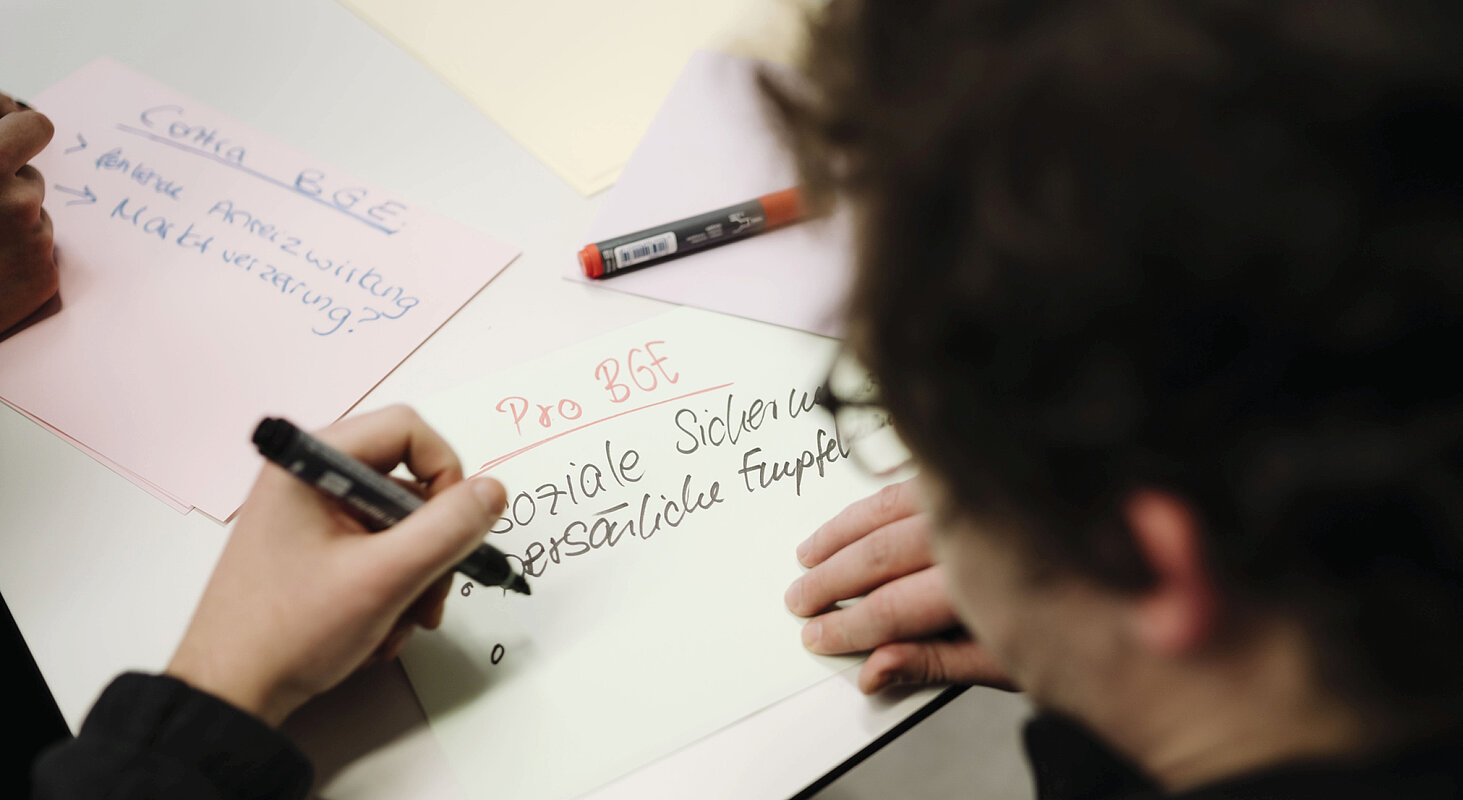 Contra BGE
> fehlende Anreizwirkung
-> Marktverzerrung?
Pro BGE
soziale
persönliche